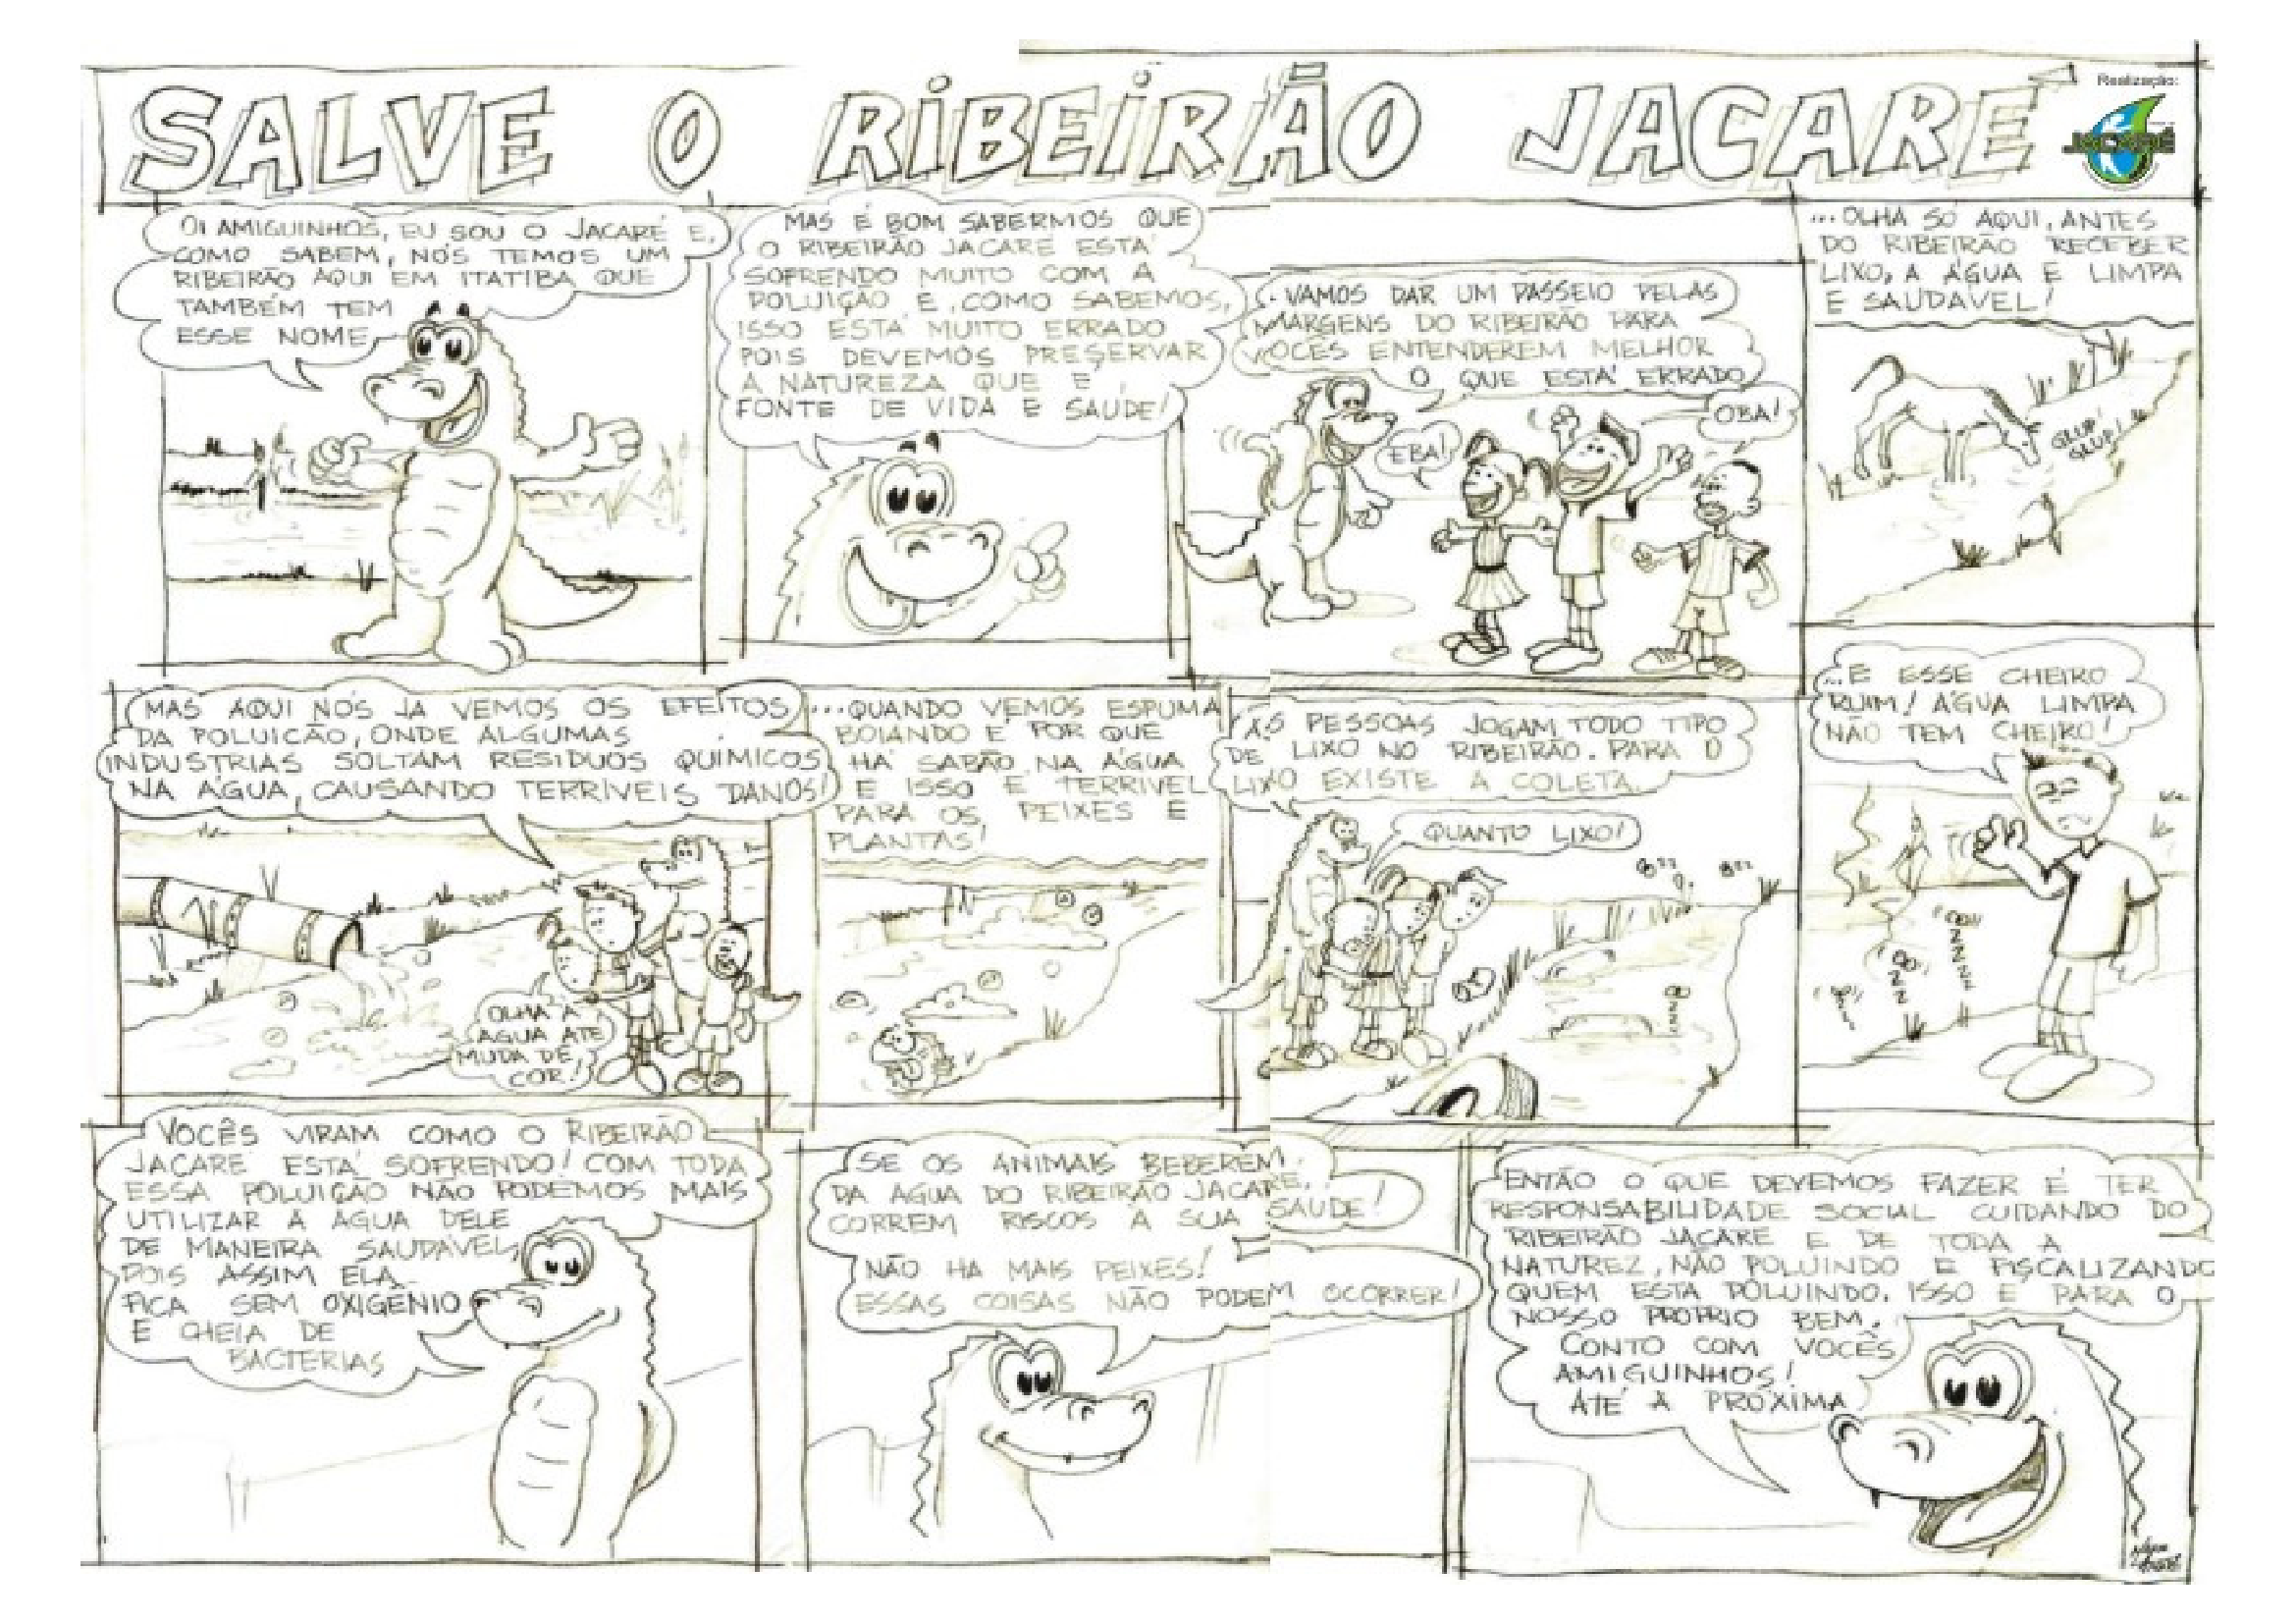 SALVE O RIBEIRÃO JACARÉ
Realização:
JACARÉ
OI AMIGUINHOS, EU SOU O JACARÉ E,
COMO SABEM, NÓS TEMOS UM
RIBEIRÃO AQUI EM ITATIBA QUE
TAMBÉM TEM
ESSE NOME
MAS É BOM SABERMOS QUE
O RIBEIRÃO JACARÉ ESTÁ
SOFRENDO MUITO COM A
POLUIÇÃO E, COMO SABEMOS,
ISSO ESTÁ MUITO ERRADO
POIS DEVEMOS PRESERVAR
A NATUREZA QUE É
FONTE DE VIDA E SAÚDE!
...VAMOS DAR UM PASSEIO PELAS
MARGENS DO RIBEIRÃO PARA
VOCÊS ENTENDEREM MELHOR
O QUE ESTÁ ERRADO
EBA!
OBA!
...OLHA SÓ AQUI, ANTES
DO RIBEIRÃO RECEBER
LIXO, A ÁGUA É LIMPA
E SAUDÁVEL!
GLUP!
GLUP!
MAS AQUI NÓS JÁ VEMOS OS EFEITOS
DA POLUICÃO, ONDE ALGUMAS
INDUSTRIAS SOLTAM RESÍDUOS QUÍMICOS
NA ÁGUA, CAUSANDO TERRÍVEIS DANOS!
OLHA A
ÁGUA ATÉ
MUDA DE
COR!
...QUANDO VEMOS ESPUMA
BOIANDO É POR QUE
HÁ SABÃO NA ÁGUA
E ISSO É TERRÍVEL
PARA OS PEIXES E
PLANTAS!
AS PESSOAS JOGAM TODO TIPO
DE LIXO NO RIBEIRÃO. PARA O
LIXO EXISTE A COLETA
QUANTO LIXO!
...E ESSE CHEIRO
RUIM! ÁGUA LIMPA
NÃO TEM CHEIRO!
VOCÊS VIRAM COMO O RIBEIRÃO
JACARÉ ESTÁ SOFRENDO! COM TODA
ESSA POLUIÇÃO NÃO PODEMOS MAIS
UTILIZAR A ÁGUA DELE
DE MANEIRA SAUDÁVEL,
POIS ASSIM ELA
FICA SEM OXIGÊNIO
E CHEIA DE
BACTÉRIAS
SE OS ANIMAIS BEBEREM
DA ÁGUA DO RIBEIRÃO JACARÉ,
CORREM RISCOS À SUA SAÚDE!
NÃO HÁ MAIS PEIXES!
ESSAS COISAS NÃO PODEM OCORRER!
ENTÃO O QUE DEVEMOS FAZER É TER
RESPONSABILIDADE SOCIAL CUIDANDO DO
RIBEIRÃO JACARÉ E DE TODA A
NATUREZ, NÃO POLUINDO E FISCALIZANDO
QUEM ESTÁ POLUINDO. ISSO É PARA O
NOSSO PRÓPRIO BEM.
CONTO COM VOCÊS
AMIGUINHOS!
ATÉ A PRÓXIMA